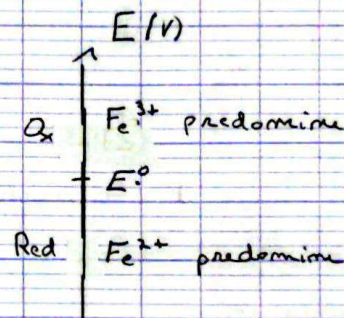 E (V)
Ox Fe³⁺ predomine
E°
Red Fe²⁺ predomine